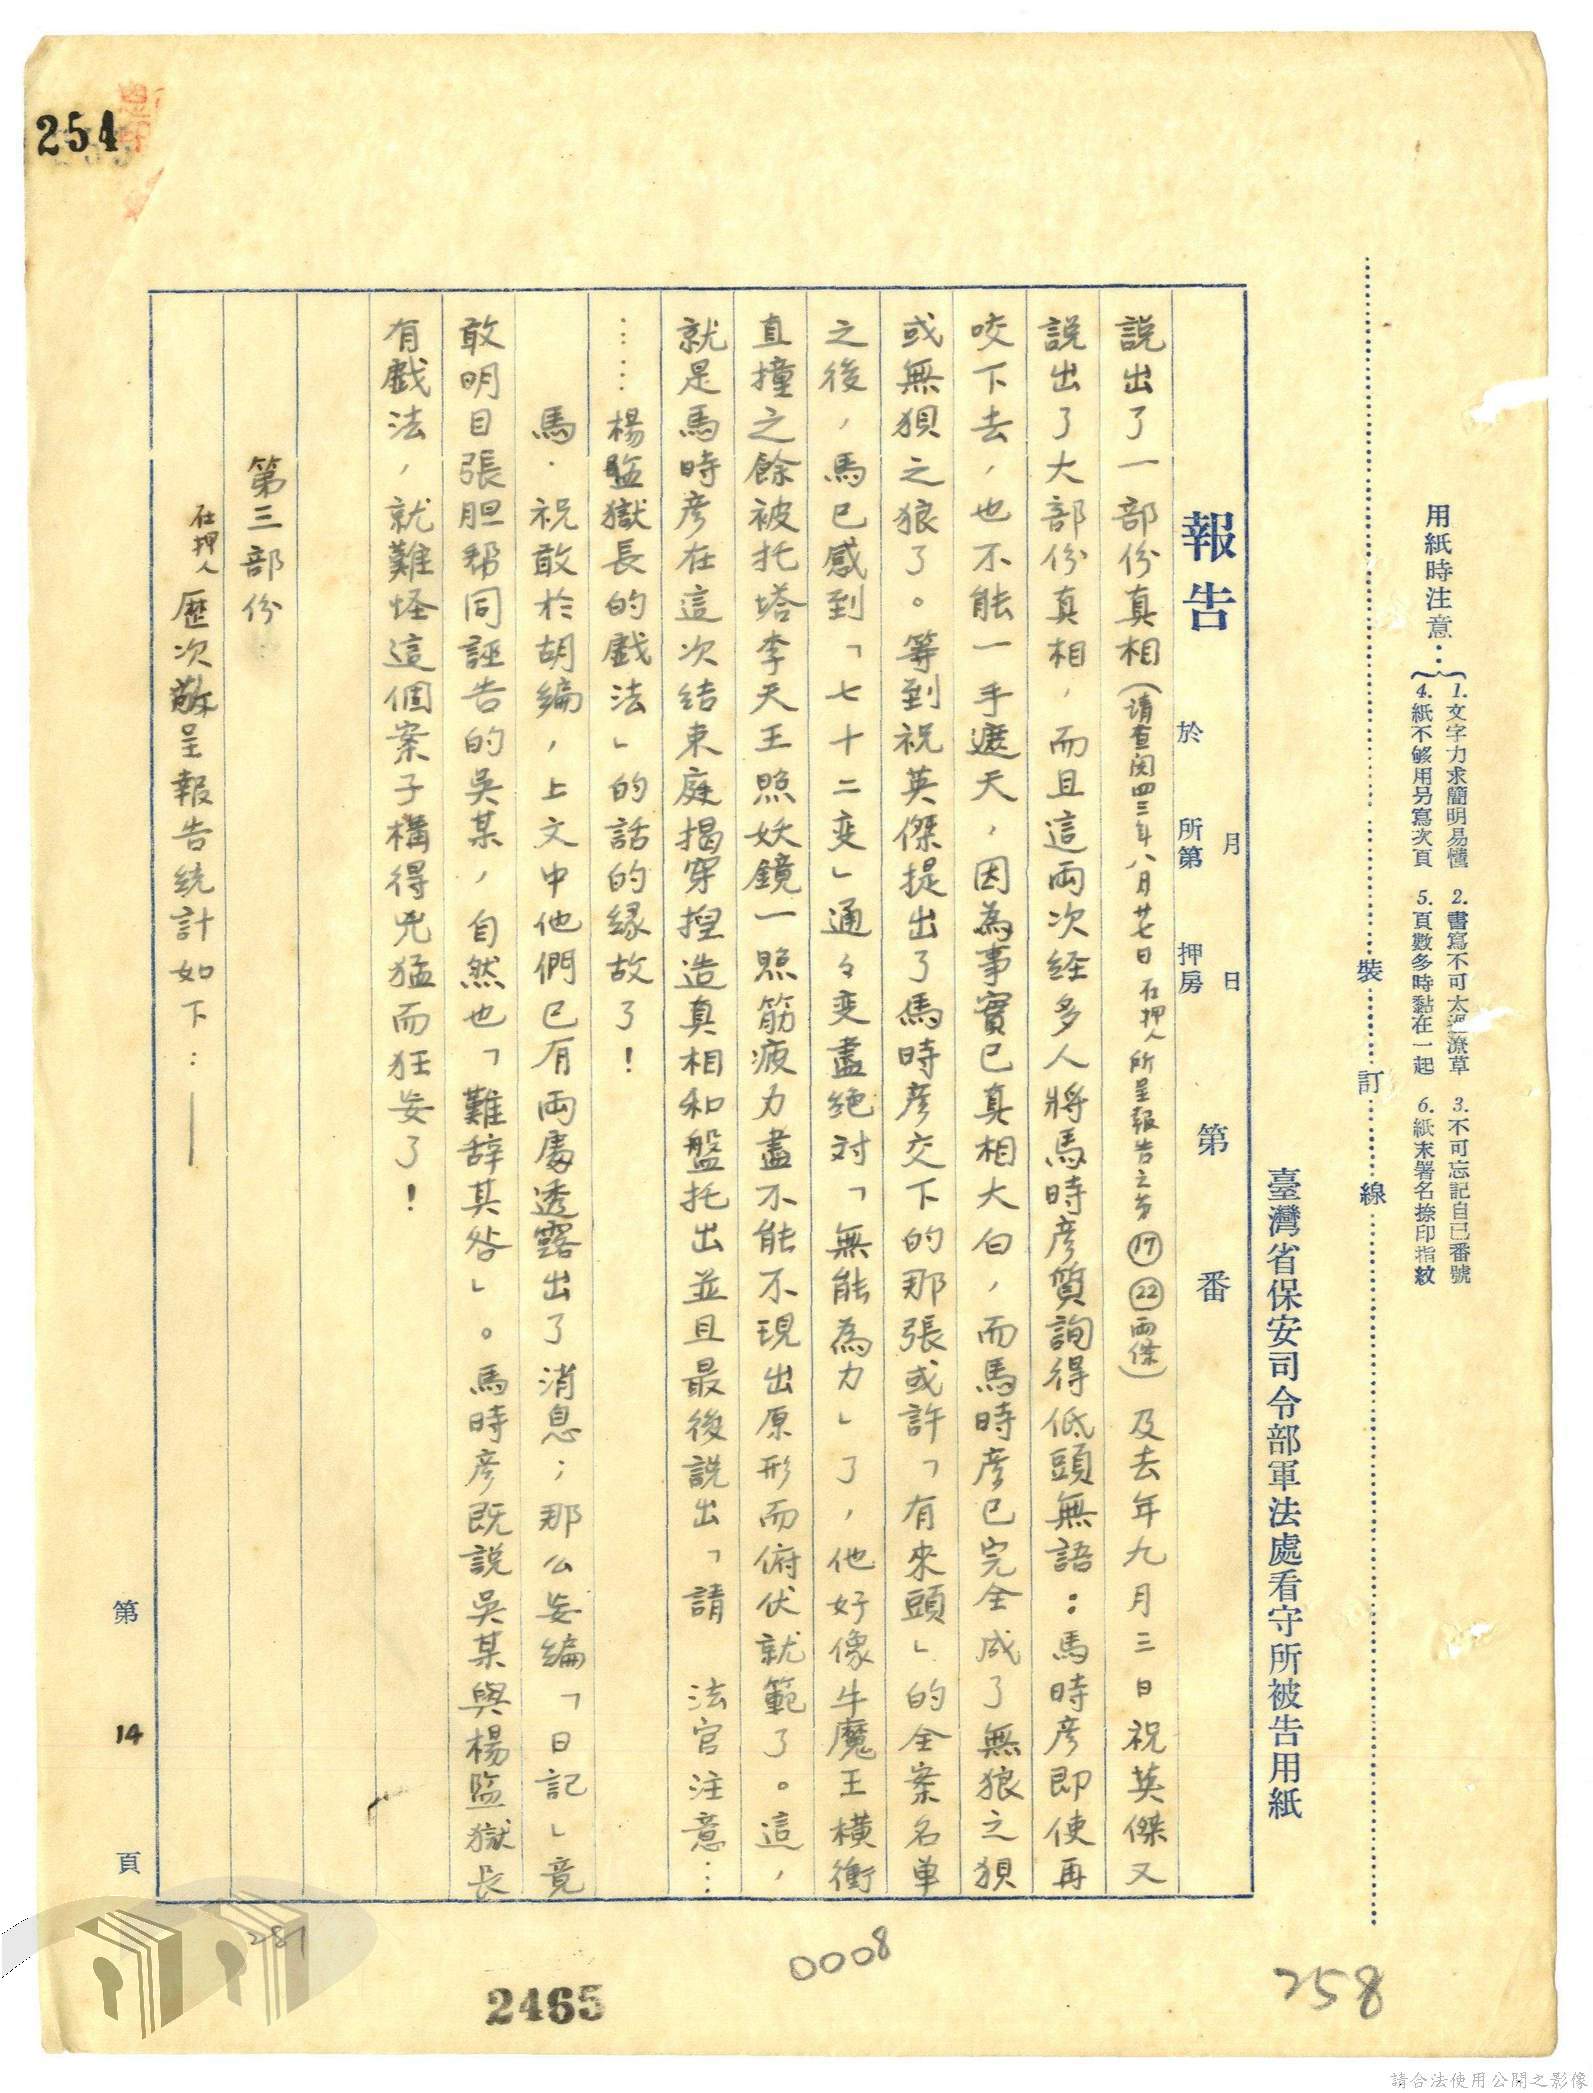 254
用紙時注意：
1.文字力求簡明易懂 2.書寫不可太過潦草 3.不可忘記自己番號
4.紙不够用另寫次頁 5.頁數多時黏在一起 6.紙末署名捺印指紋
裝 訂 線
臺灣省保安司令部軍法處看守所被告用紙
報告
月 日
於 所第 押房
第 番
說出了一部份真相(请查閱四三年八月廿七日在押人所呈報告之第⑰㉒両條)及去年九月三日祝英傑又
說出了大部份真相，而且這両次経多人將馬時彥質詢得低頭無語：馬時彥即使再
咬下去，也不能一手遮天，因為事實已真相大白，而馬時彥已完全成了無狼之狽
或無狽之狼了。等到祝英傑提出了馬時彥交下的那張或許「有來頭」的全案名单
之後，馬已感到「七十二变」通々变盡绝对「無能為力」了，他好像牛魔王橫衝
直撞之餘被托塔李天王照妖鏡一照筋疲力盡不能不現出原形而俯伏就範了。這，
就是馬時彥在這次结束庭揭穿揑造真相和盤托出並且最後說出「請 法官注意…
……楊監獄長的戱法」的話的縁故了！
馬．祝敢於胡編，上文中他們已有両處透露出了消息；那么妄編「日記」竟
敢明目張胆帮同誣告的吳某，自然也「難辞其咎」。馬時彥既說吳某與楊監獄長
有戱法，就難怪這個案子構得兇猛而狂妄了！
第三部份
在押人歷次敬呈報告統計如下：——
第 14 頁
287
0008
2465
258
請合法使用公開之影像